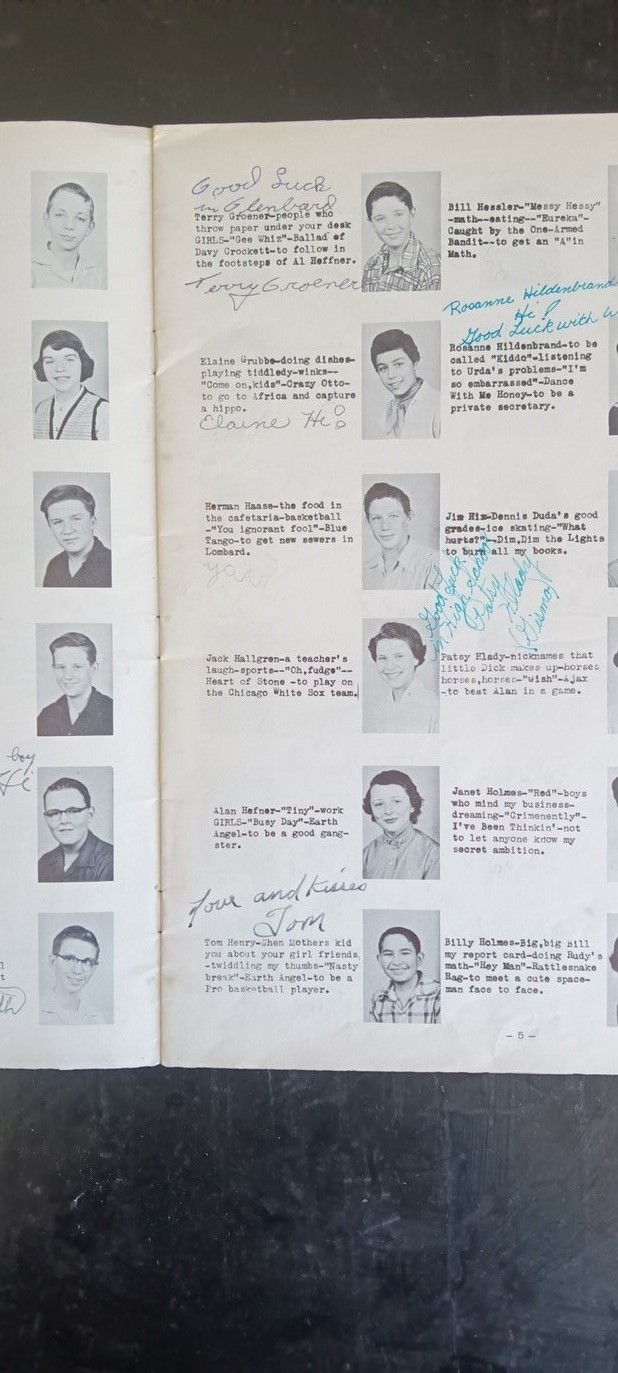 Good Luck
in Glenbard
Terry Groener-people who
throw paper under your desk
GIRLS-"Gee Whiz"-Ballad of
Davy Crockett-to follow in
the footsteps of Al Heffner.
Terry Groener
Elaine Grubbe-doing dishes-
playing tiddledy-winks--
"Come on,kids"-Crazy Otto-
to go to Africa and capture
a hippo.
Elaine Hi!
Herman Haase-the food in
the cafetaria-basketball
-"You ignorant fool"-Blue
Tango-to get new sewers in
Lombard.
Jack Hallgren-a teacher's
laugh-sports--"Oh,fudge"--
Heart of Stone -to play on
the Chicago White Sox team.
boy
Hi
Alan Hefner-"Tiny"-work
GIRLS-"Busy Day"-Earth
Angel-to be a good gang-
ster.
Love and Kisses
Tom
Tom Henry-When Mothers kid
you about your girl friends,
-twiddling my thumbs-"Nasty
break"-Earth Angel-to be a
Pro basketball player.
Bill Hessler-"Messy Hessy"
-math--eating--"Eureka"-
Caught by the One-Armed
Bandit--to get an "A"in
Math.
Rosanne Hildenbrand
Hi!
Good Luck with
Rosanne Hildenbrand-to be
called "Kiddo"-listening
to Urda's problems-"I'm
so embarrassed"-Dance
With Me Honey-to be a
private secretary.
Jim Hix-Dennis Duda's good
grades-ice skating-"What
hurts?"--Dim,Dim the Lights
to burn all my books.
Good Luck
in High School
Patsy
Hlady
(Gismo)
Patsy Hlady-nicknames that
little Dick makes up-horses
horses,horses-"Wish"-Ajax
-to beat Alan in a game.
Janet Holmes-"Red"-boys
who mind my business-
dreaming-"Crimenently"-
I've Been Thinkin'-not
to let anyone know my
secret ambition.
Billy Holmes-Big,big Bill
my report card-doing Rudy's
math-"Hey Man"-Rattlesnake
Rag-to meet a cute space-
man face to face.
- 5 -